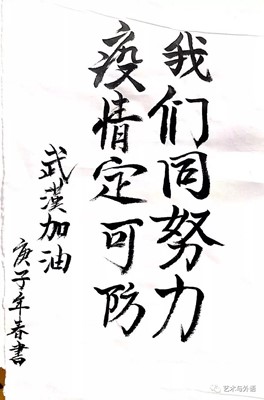 我们同努力
疫情定可防
武漢加油
庚子年春書
艺术与外语